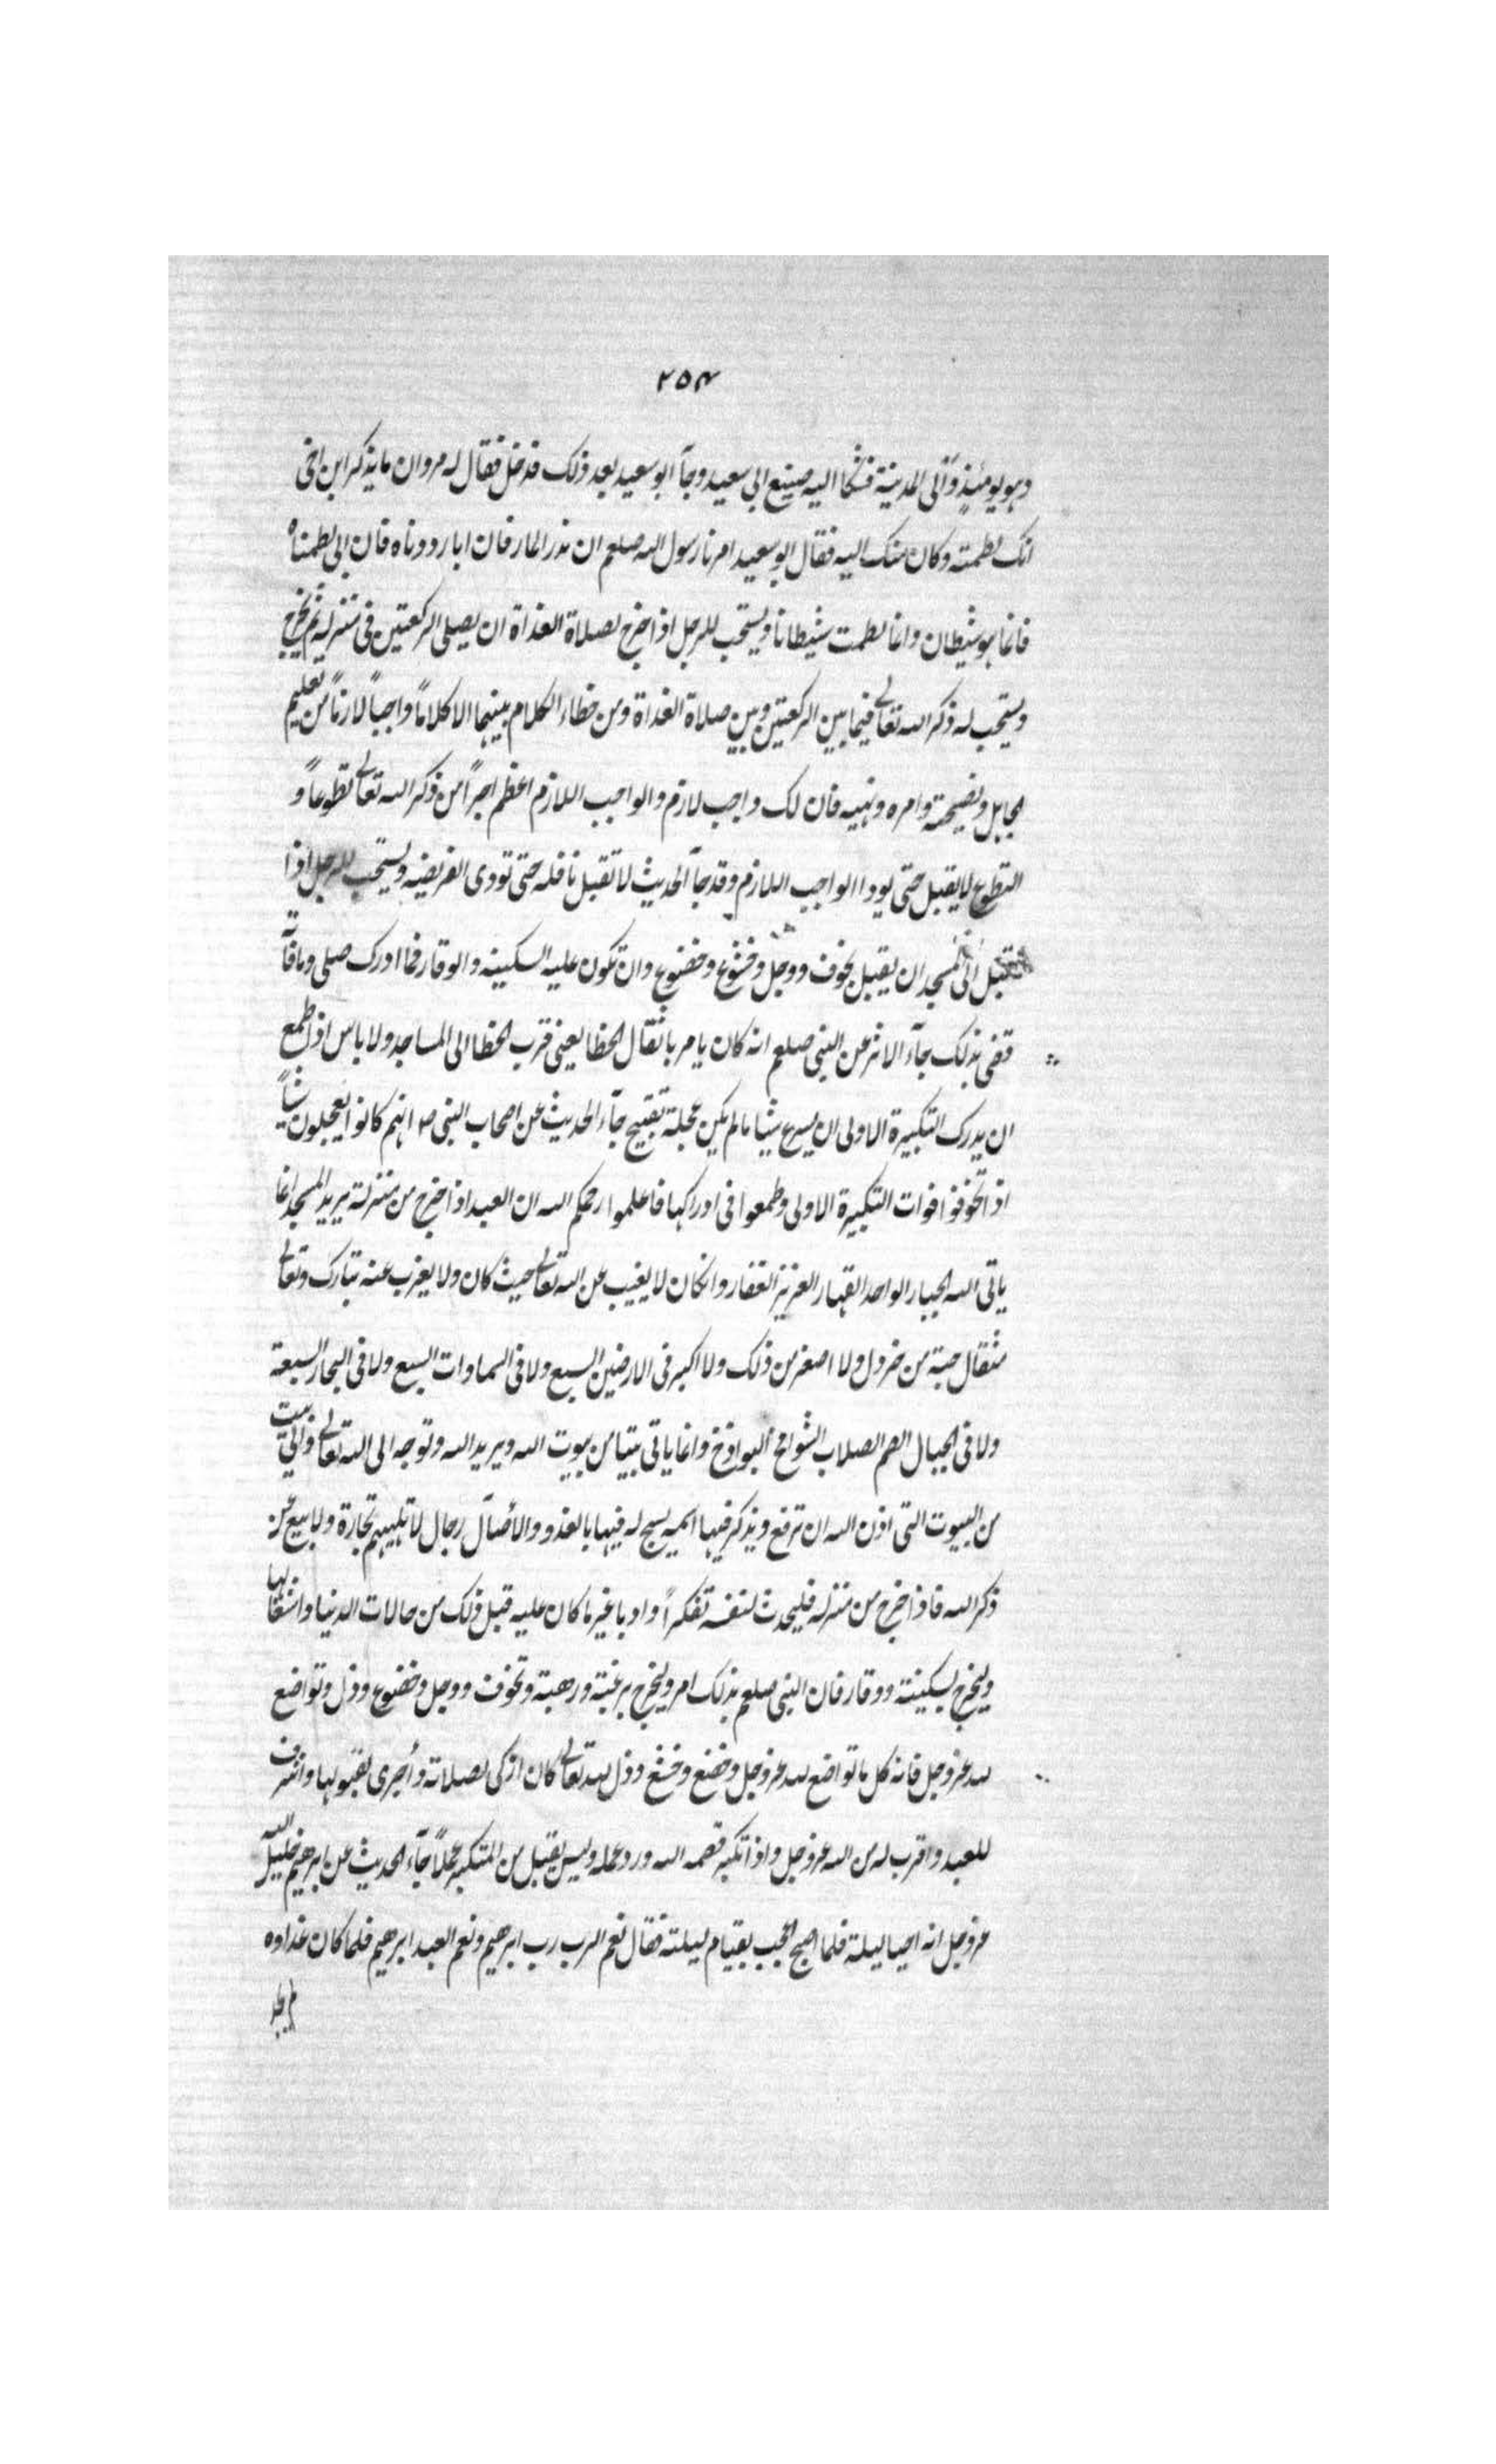 ٢٥٣
وهو يومئذٍ وٓالى المدينة فشكا اليه صنيع ابى سعيد وجآ ابو سعيد بعد ذلك فدخل فقال له مروان ما يذكر ابن اخى
انك لطمته وكان منك اليه فقال ابو سعيد امرنا رسول الله صلعم ان ندر المار فان ابا رددناه فان ابى لطمناه
فانما هو شيطان وانما لطمت شيطانا ويستحب للرجل اذا خرج لصلاة الغداة ان يصلى الركعتين فى منزله ثم يخرج
ويستحب له ذكر الله تعالى فيما بين الركعتين وبين صلاة الغداة ومن خطاء الكلام بينهما الا كلاماً واجباً لازماً من تعليم
لجاهل ونصيحة وامره ونهيه فان لك واجب لازم والواجب اللازم اعظم اجراً من ذكر الله تعالى تطوعاً و
التطوع لا يقبل حتى يودا الواجب اللازم وقد جآ الحديث لا تقبل نافله حتى تودى الفريضه ويستحب للرجل اذا
قبل الى المسجد ان يقبل بخوف ووجل وخشوع وخضوع وان تكون عليه السكينه والوقار فما ادرك صلى وما فاته
قضى بذلك جآء الاثر عن النبى صلعم انه كان يامر باثقال الخطا يعنى قرب الخطا الى المساجد ولا باس اذا طمع
ان يدرك التكبيرة الاولى ان يسرع شيئا ما لم يكن عجلة تقبيح جآء الحديث عن اصحاب النبى ص انهم كانوا يعجلون شيأً
اذا تخوفوا فوات التكبيرة الاولى وطمعوا فى ادراكها فاعلموا رحمكم الله ان العبد اذا خرج من منزلة يريد المسجد انما
ياتى الله الجبار الواحد القهار العزيز الغفار وان كان لا يغيب عن الله تعالى حيث كان ولا يعزب عنه تبارك وتعالى
مثقال حبة من خردل ولا اصغر من ذلك ولا اكبر فى الارضين السبع ولا فى السماوات السبع ولا فى البحار السبعة
ولا فى الجبال الصم الصلاب الشوامخ البواذخ وانما ياتى بيتا من بيوت الله ويريد الله وتوجه الى الله تعالى والى بيت
من البيوت التى اذن الله ان ترفع ويذكر فيها اسمه يسبح له فيها بالغدو والاصآل رجال لا تلهيهم تجارة ولا بيع عن
ذكر الله فاذا خرج من منزله فليحدث لنفسه تفكراً وادبا غير ما كان عليه قبل ذلك من حالات الدنيا واشغالها
وليخرج بسكينة ووقار فان النبى صلعم بذلك امر وليخرج برغبة ورهبة وتخوف ووجل وخضوع وذل وتواضع
لله عز وجل فانه كل ما تواضع لله عز وجل وخضع وخشع وذل لله تعالى كان ازكى لصلاته واُحرى لقبولها واشرف
للعبد واقرب له من الله عز وجل واذا تكبر قصمه الله ورد عمله وليس يقبل من المتكبر عملاً جآء الحديث عن ابرهيم خليل الله
عز وجل انه احيا ليلة فلما اصبح اعجب بقيام ليلته فقال نعم الرب رب ابرهيم ونعم العبد ابرهيم فلما كان غداوه
لم يجد